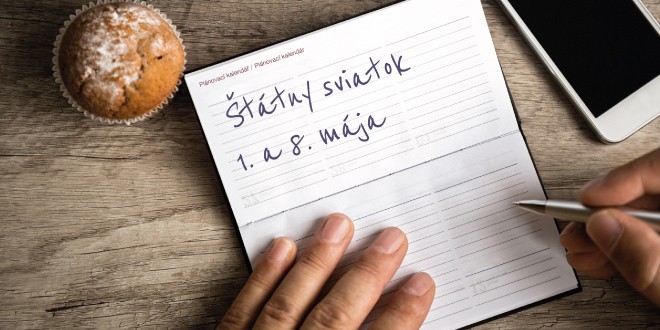 Plánovací kalendář / Plánovací kalendár
Štátny sviatok
1. a 8. mája